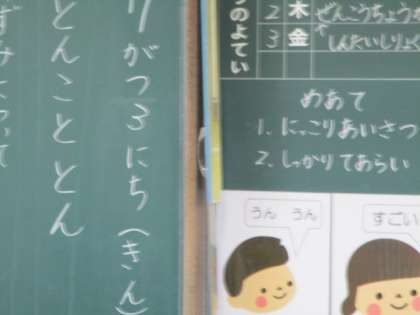 7がつ3にち(きん)
とんこととん
ずみにつって
のよてい
2 木 ぜんこうちょう
3 金 しんたいしりょく
めあて
1. にっこりあいさつ
2. しっかりてあらい
うん うん
すごい